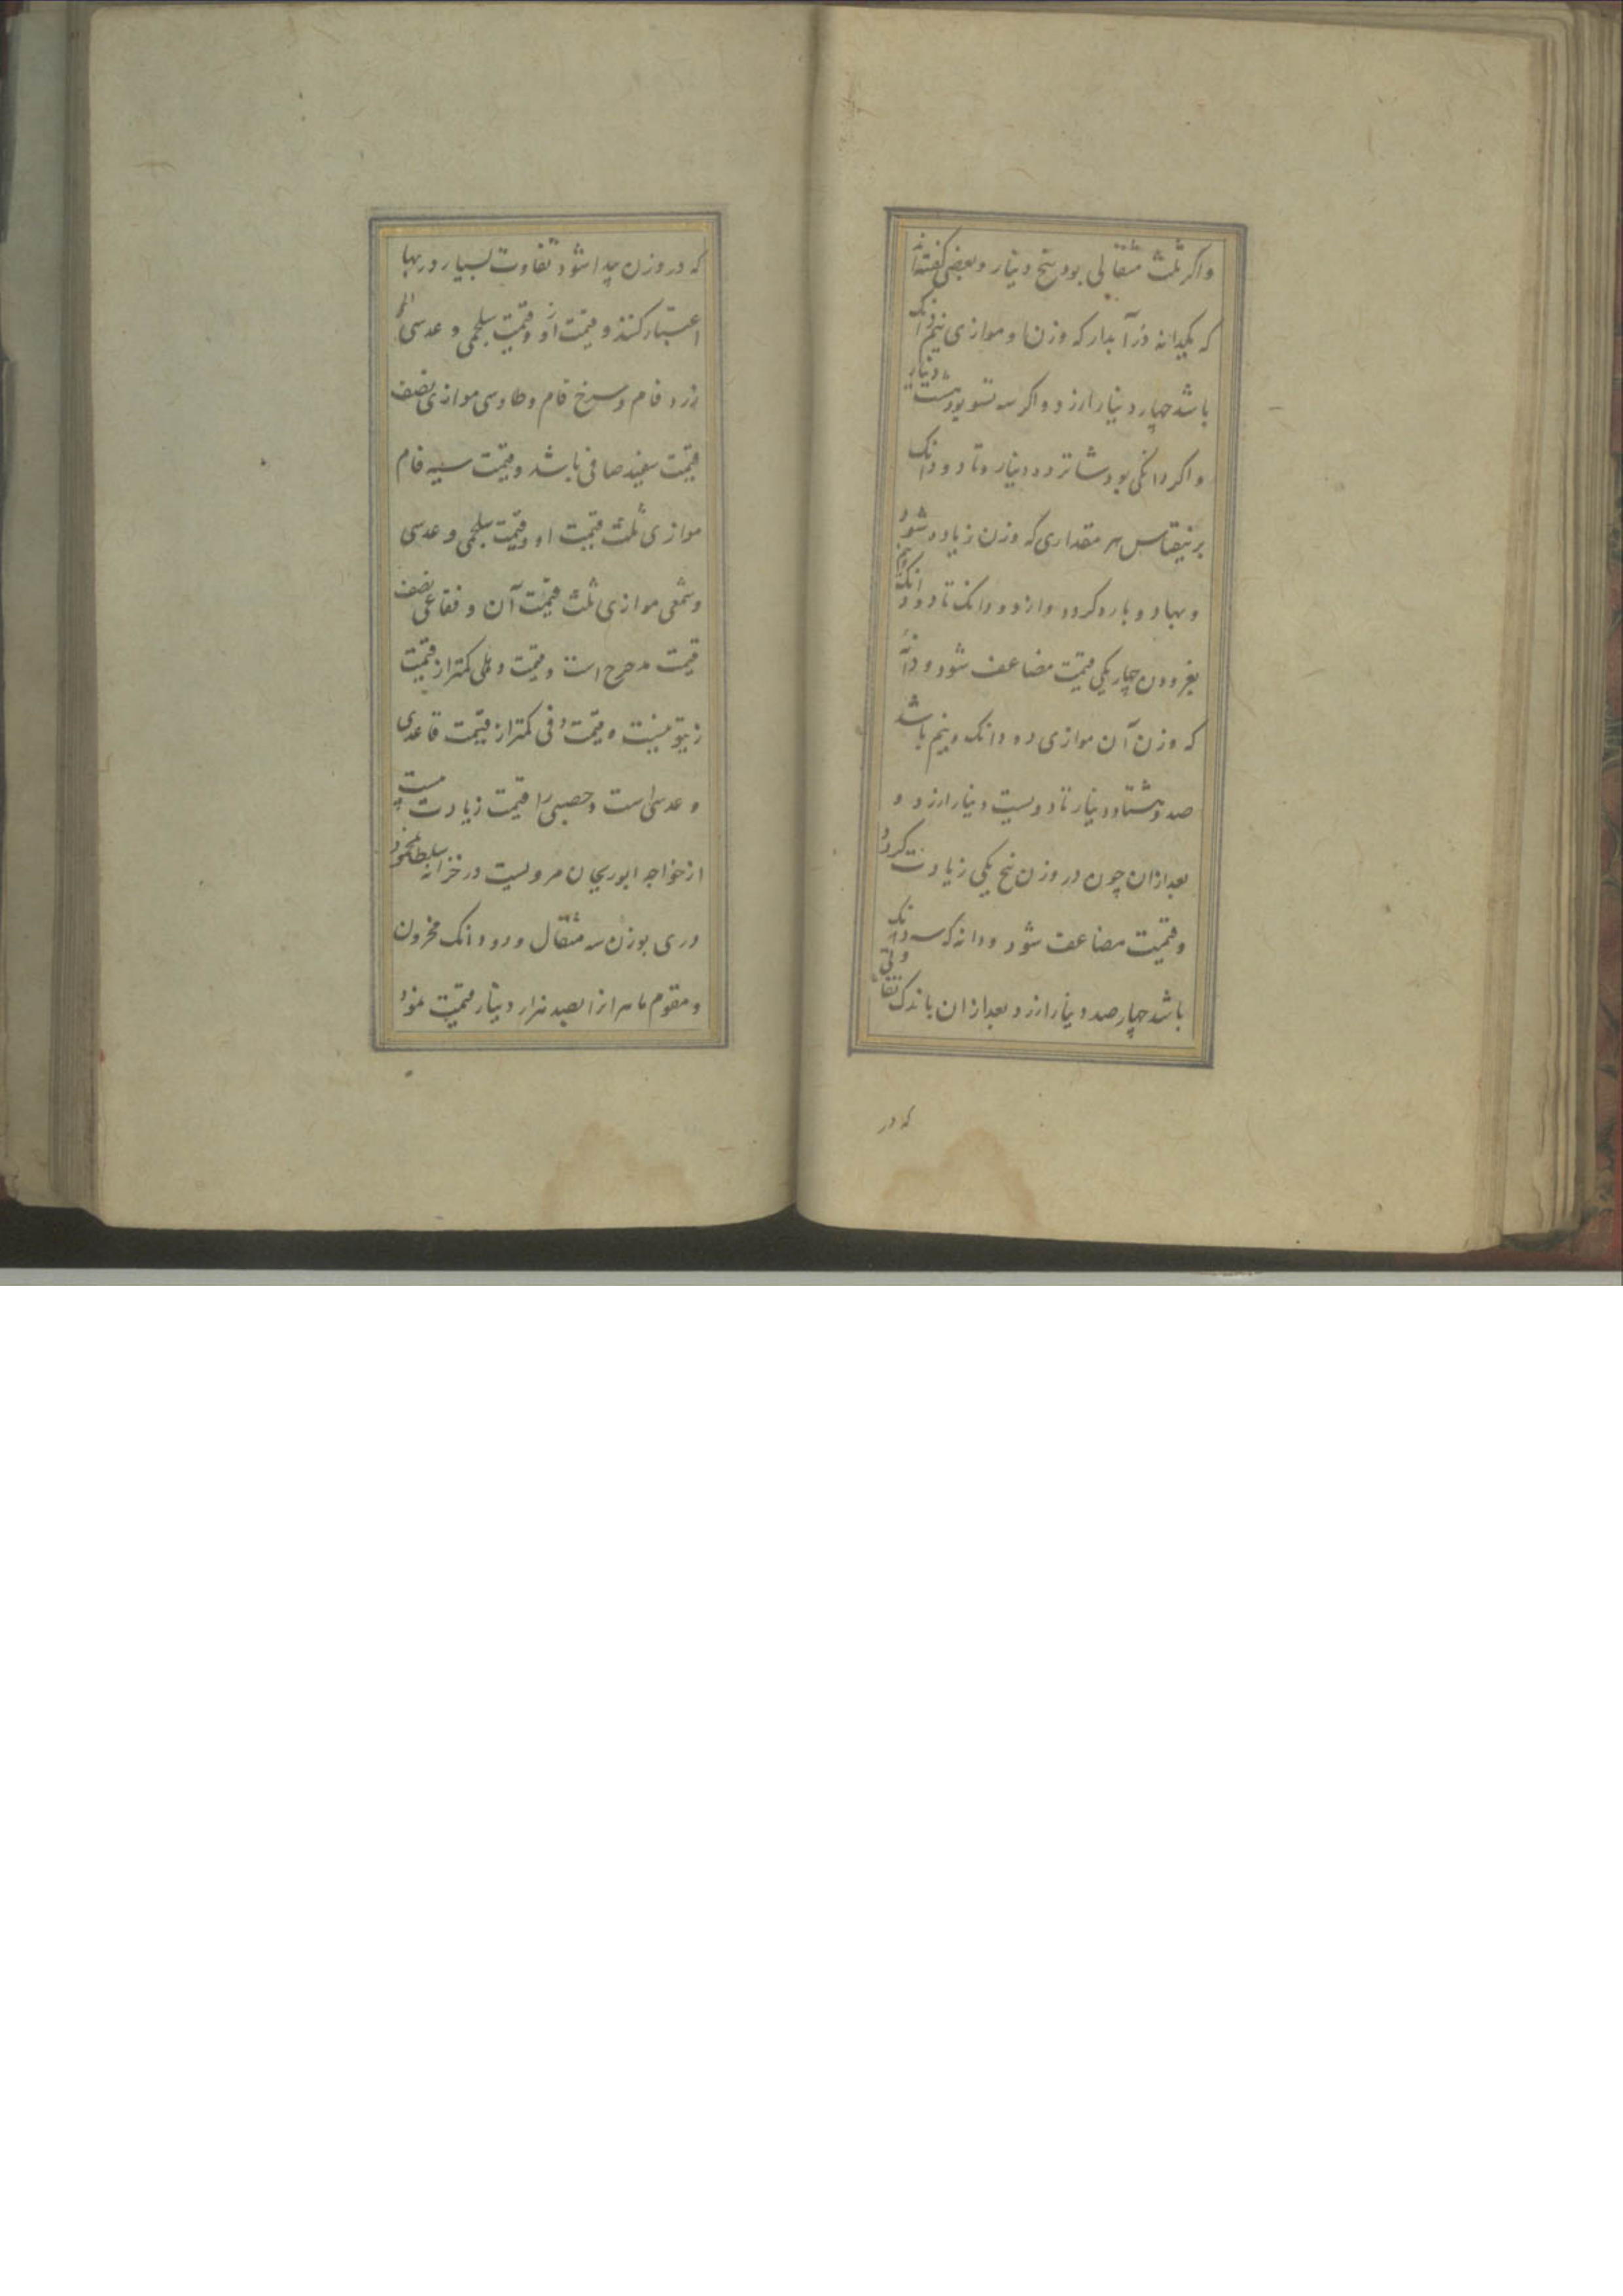 واکر ثلث مثقالی بود پنج دینار و بعضی گفته‌اند
که یکدانه در آبدار که وزن او موازی نیم دانک
باشد چهار دینار ارزد و اکر سه تسو بود هشت دینار
و اکر دانکی بود شانزده دینار و تا دو دانک
برین قیاس هر مقداری که وزن زیاده شود
و بها دوباره کردد و از دو دانک تا دو دانک و نیم
بفزودن چهار یکی قیمت مضاعف شود و دانه
که وزن آن موازی دو دانک و نیم باشد
صد و هشتاد دینار تا دویست دینار ارزد و
بعد ازان چون در وزن پنج یکی زیادت کردد
و قیمت مضاعف شود و دانه که سه دانک
باشد چهار صد دینار ارزد و بعد ازان باندک تفاوتی
که در
که در وزن پیدا شود تفاوت بسیار در بها
اعتبار کنند و قیمت او و قیمت شلجمی و عدسی
زرد فام و سرخ فام و طاوسی موازی نصف
قیمت سفید صافی باشد و قیمت سیه فام
موازی ثلث قیمت او و قیمت شلجمی و عدسی
و شمعی موازی ثلث قیمت آن و فقاعی نصف
قیمت مدحرج است و قیمت رملی کمتر از قیمت
زیتونیست و قیمت کمتر از قیمت قاعدی
و عدسی است و جصی را قیمت زیادت نیست
از خواجه ابوریحان مرویست در خزانه سلطان محمود
دری بوزن سه مثقال و دو دانک مخزون
و مقوم ماهر انرا بصد هزار دینار قیمت نمود